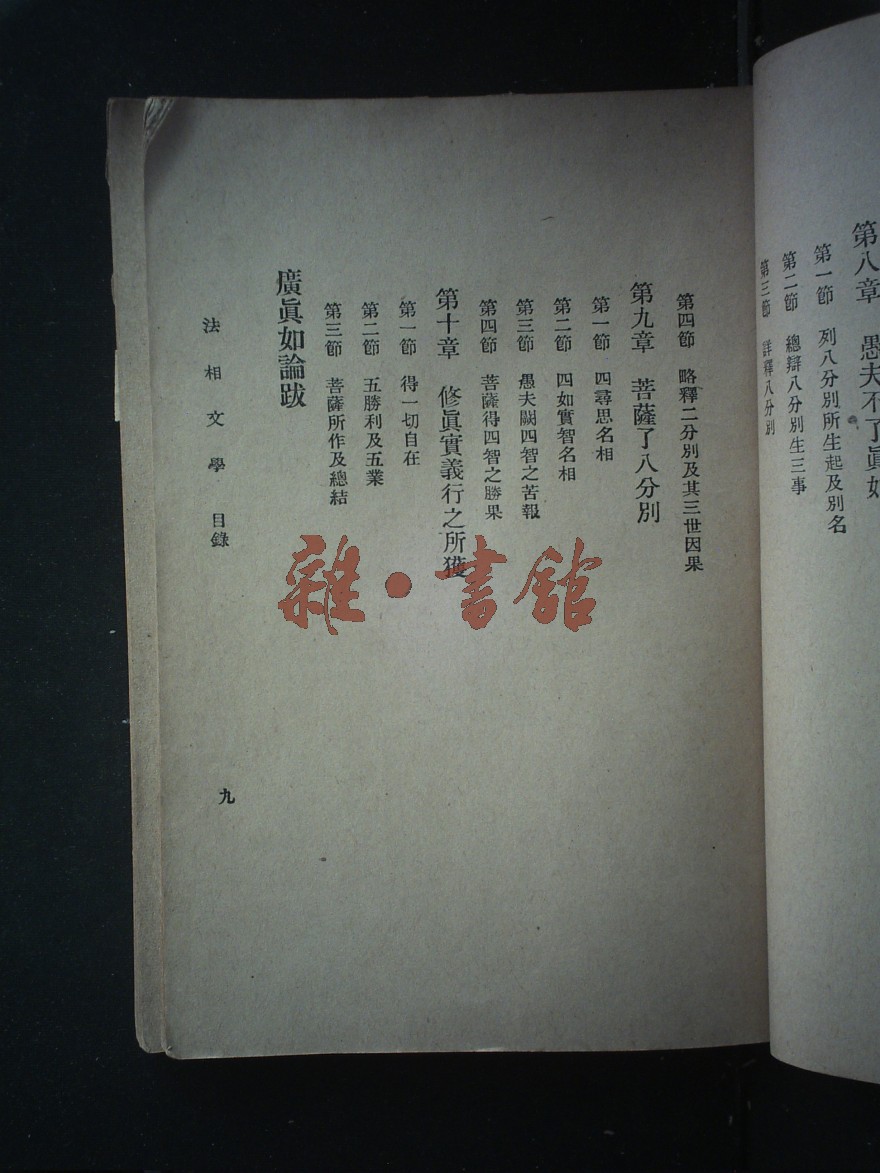 第八章 愚夫不了眞如
第一節 列八分別所生起及別名
第二節 總辯八分別生三事
第三節 詳釋八分別
第四節 略釋二分別及其三世因果
第九章 菩薩了八分別
第一節 四尋思名相
第二節 四如實智名相
第三節 愚夫闕四智之苦報
第四節 菩薩得四智之勝果
第十章 修眞實義行之所獲
第一節 得一切自在
第二節 五勝利及五業
第三節 菩薩所作及總結
廣眞如論跋
法相文學 目錄
九
雜·書館